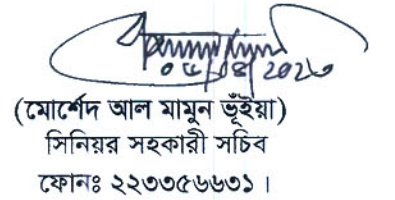 (মোর্শেদ আল মামুন ভূঁইয়া)
সিনিয়র সহকারী সচিব
ফোনঃ ২২৩৩৫৬৬৩১ ।